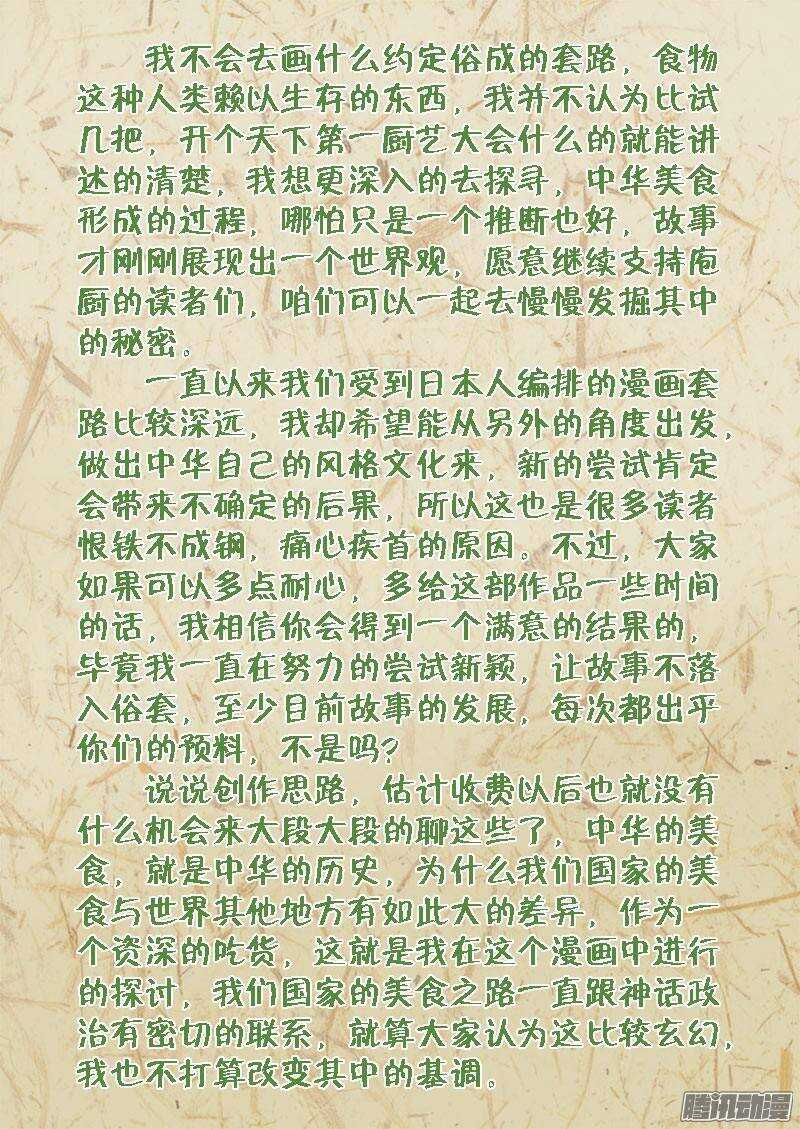 我不会去画什么约定俗成的套路，食物
这种人类赖以生存的东西，我并不认为比试
几把，开个天下第一厨艺大会什么的就能讲
述的清楚，我想更深入的去探寻，中华美食
形成的过程，哪怕只是一个推断也好，故事
才刚刚展现出一个世界观，愿意继续支持庖
厨的读者们，咱们可以一起去慢慢发掘其中
的秘密。
一直以来我们受到日本人编排的漫画套
路比较深远，我却希望能从另外的角度出发，
做出中华自己的风格文化来，新的尝试肯定
会带来不确定的后果，所以这也是很多读者
恨铁不成钢，痛心疾首的原因。不过，大家
如果可以多点耐心，多给这部作品一些时间
的话，我相信你会得到一个满意的结果的，
毕竟我一直在努力的尝试新颖，让故事不落
入俗套，至少目前故事的发展，每次都出乎
你们的预料，不是吗？
说说创作思路，估计收费以后也就没有
什么机会来大段大段的聊这些了，中华的美
食，就是中华的历史，为什么我们国家的美
食与世界其他地方有如此大的差异，作为一
个资深的吃货，这就是我在这个漫画中进行
的探讨，我们国家的美食之路一直跟神话政
治有密切的联系，就算大家认为这比较玄幻，
我也不打算改变其中的基调。
腾讯动漫